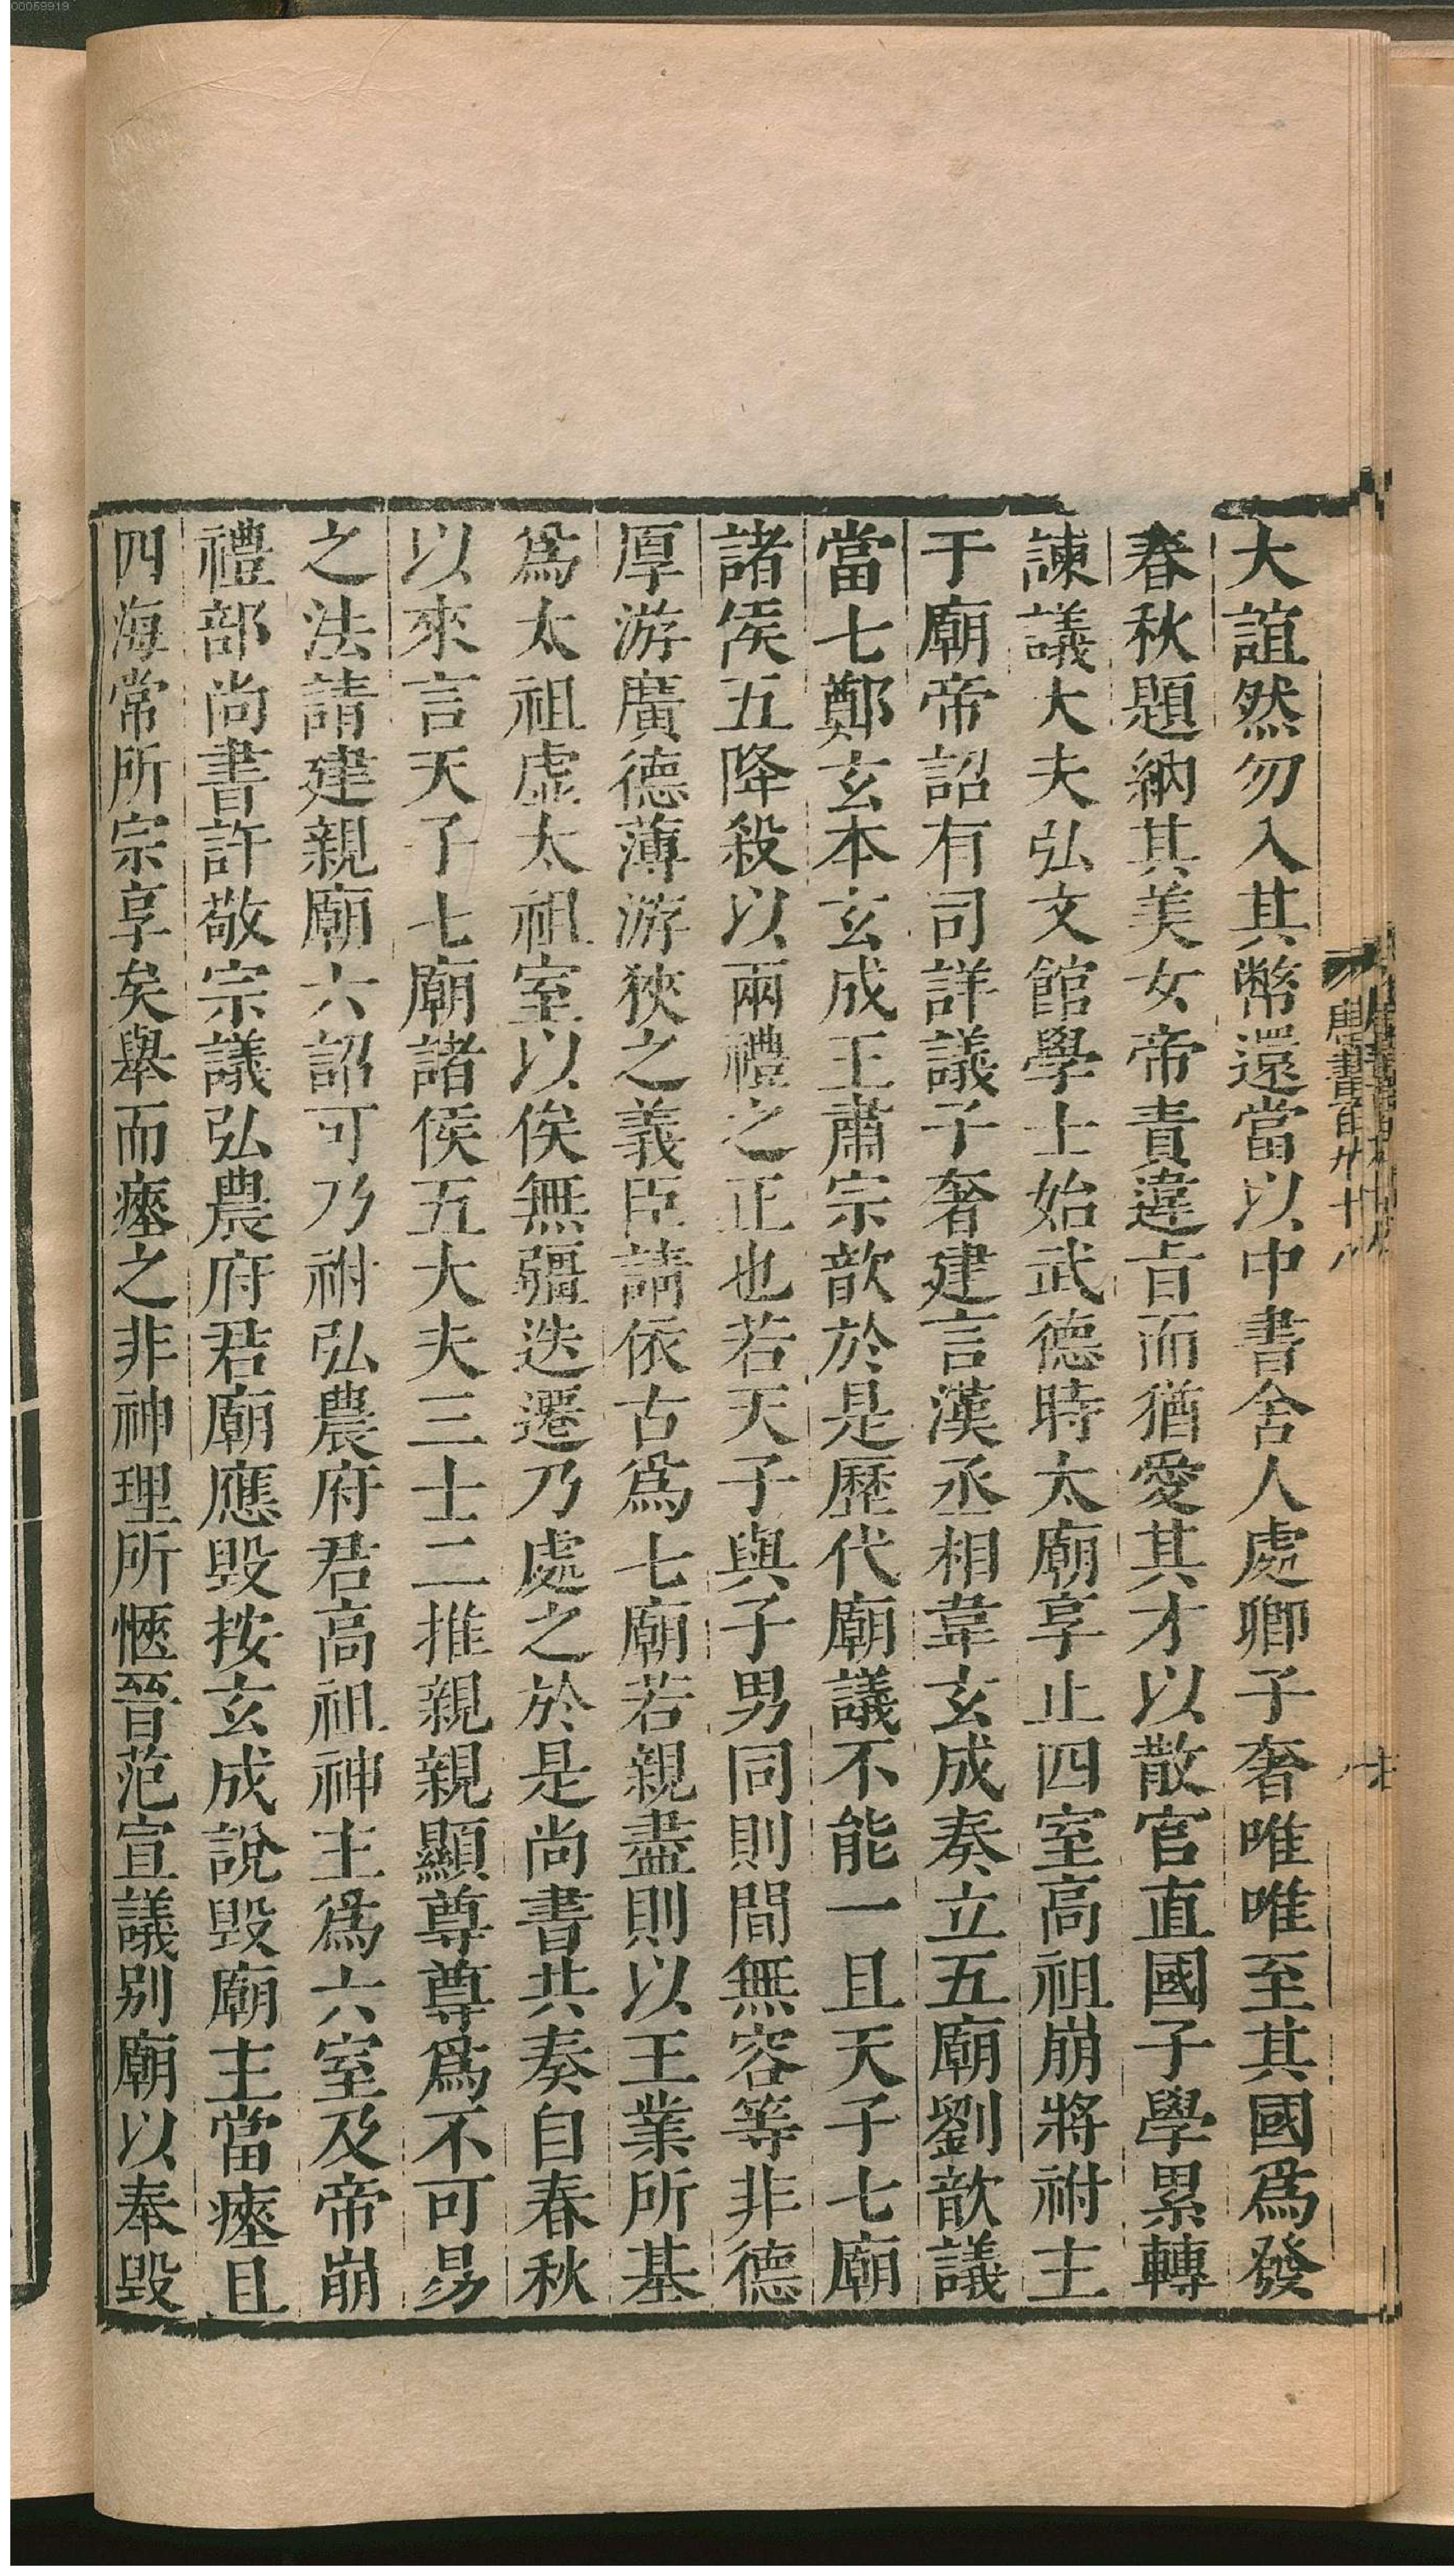 大誼然勿入其幣還當以中書舍人處卿子奢唯唯至其國爲發
春秋題納其美女帝責違旨而猶愛其才以散官直國子學累轉
諫議大夫弘文館學士始武德時太廟享止四室高祖崩將祔主
于廟帝詔有司詳議子奢建言漢丞相韋玄成奏立五廟劉歆議
當七鄭玄本玄成王肅宗歆於是歷代廟議不能一且天子七廟
諸侯五降殺以兩禮之正也若天子與子男同則間無容等非德
厚游廣德薄游狹之義臣請依古爲七廟若親盡則以王業所基
爲太祖虛太祖室以俟無疆迭遷乃處之於是尚書共奏自春秋
以來言天子七廟諸侯五大夫三士二推親親顯尊尊爲不可易
之法請建親廟六詔可乃祔弘農府君高祖神主爲六室及帝崩
禮部尚書許敬宗議弘農府君廟應毀按玄成說毀廟主當瘞且
四海常所宗享矣舉而瘞之非神理所愜晉范宣議別廟以奉毀
00059919